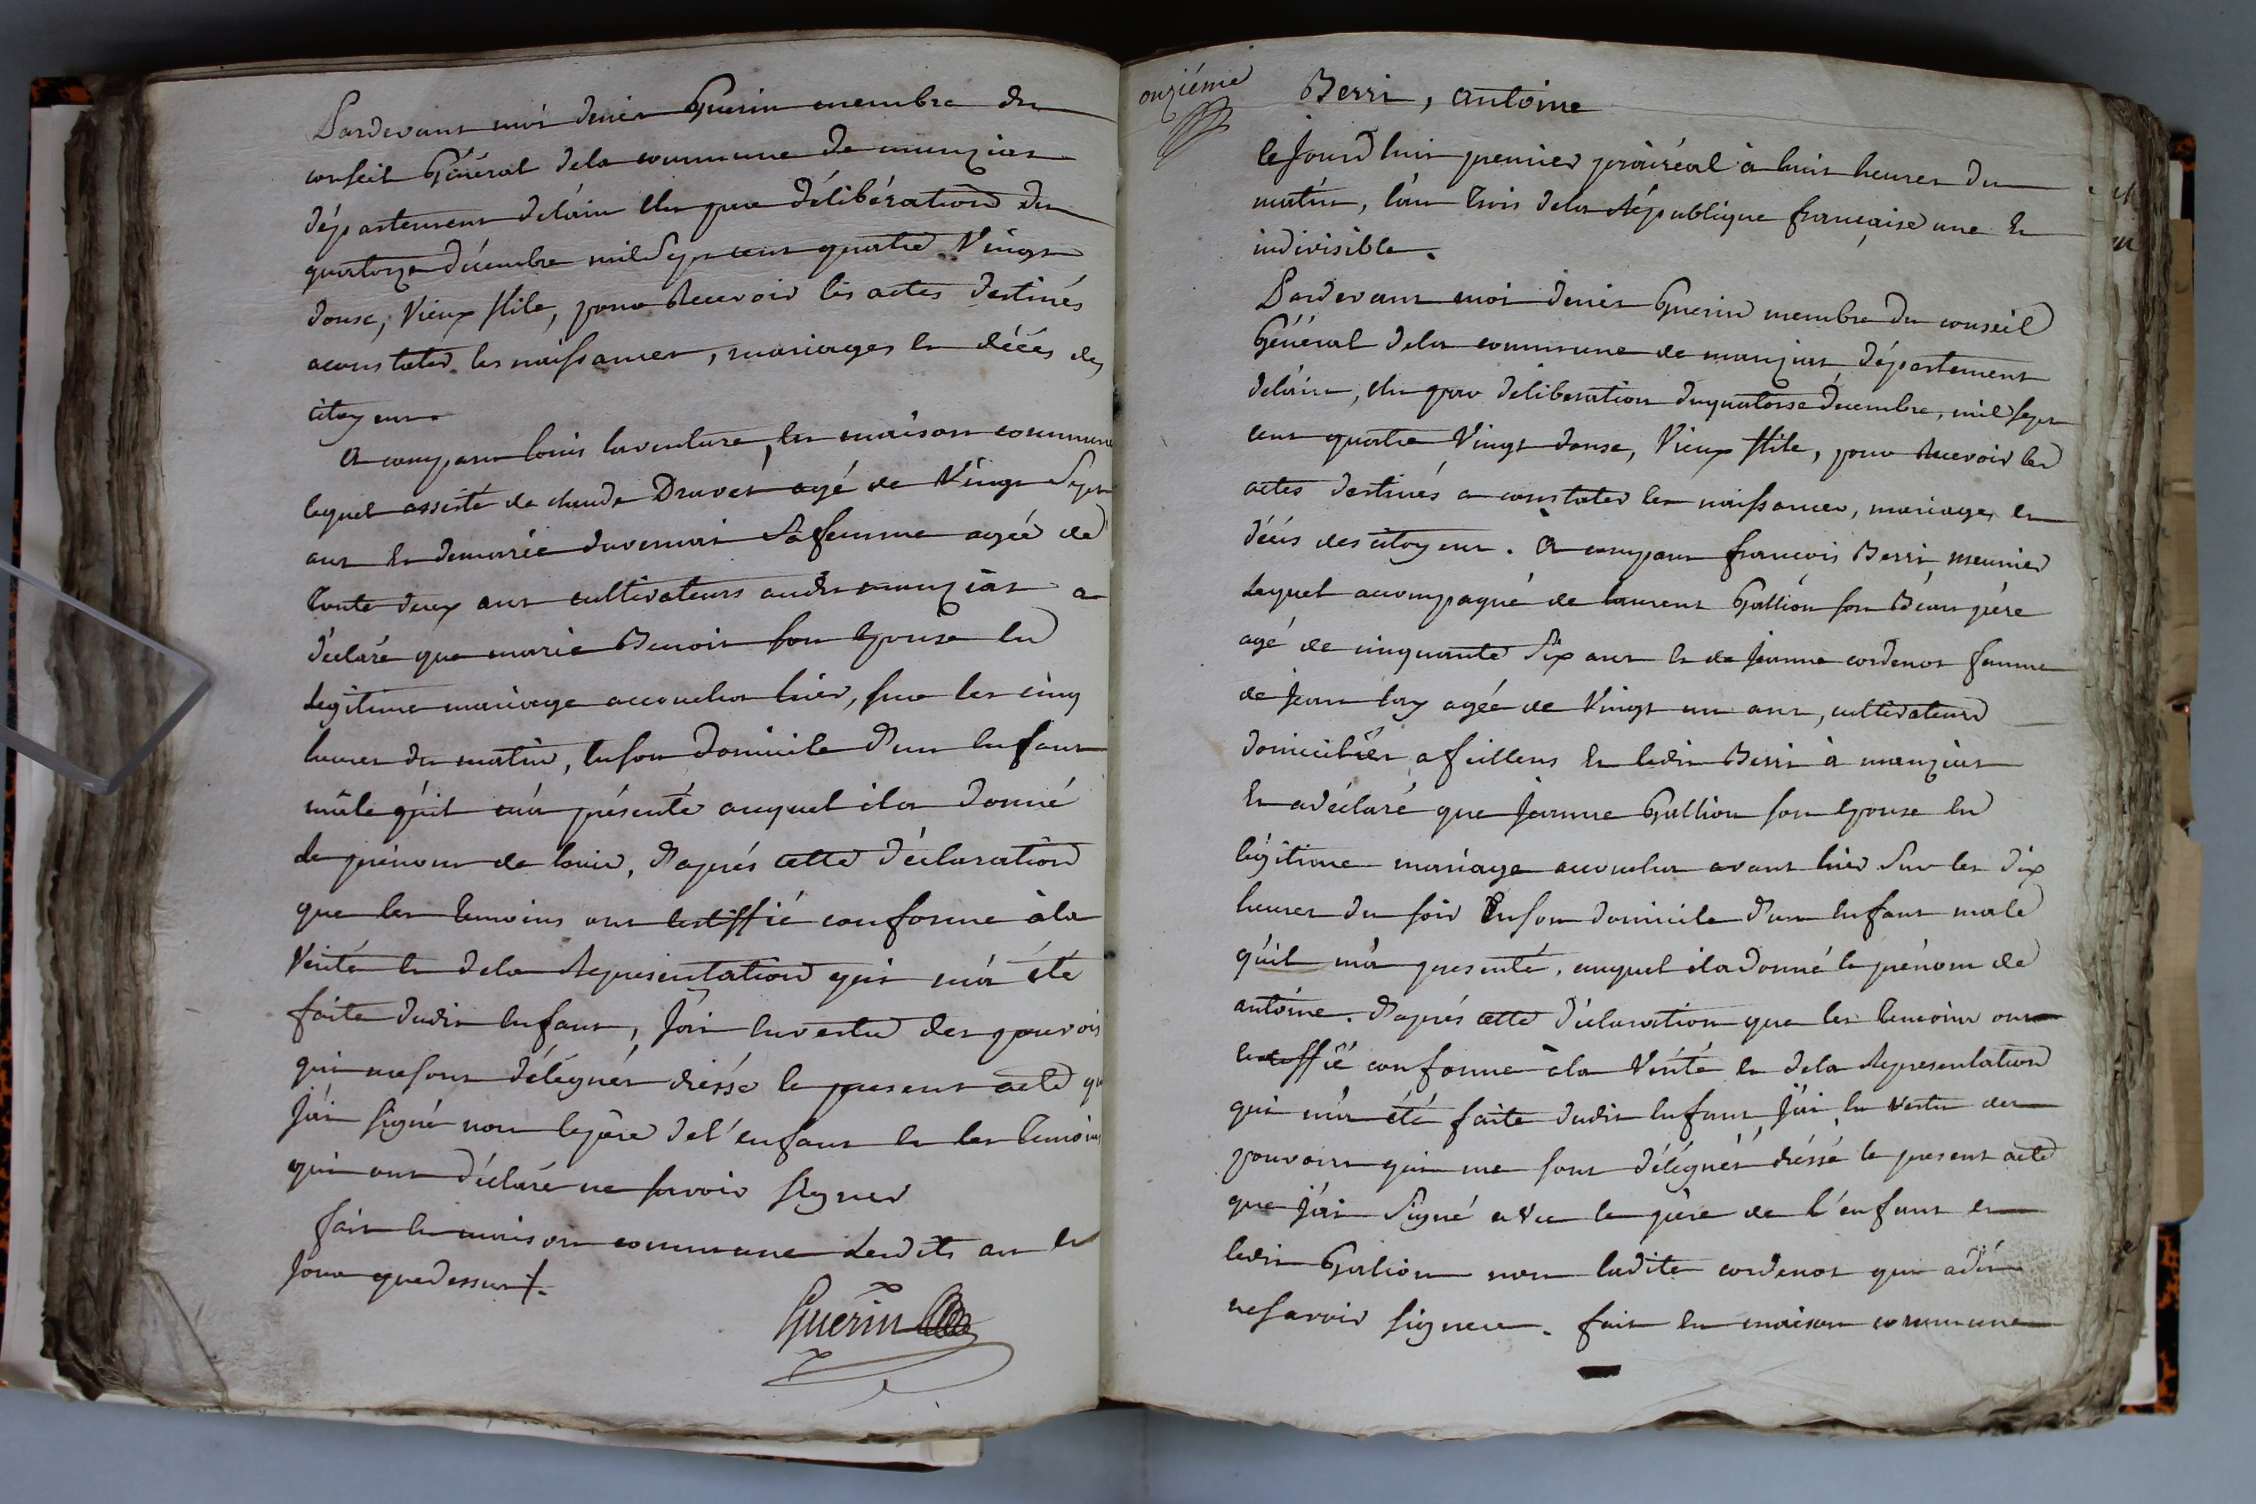 Pardevant moi denis Guerin membre du
conseil Général dela commune de manziat
département delain élu par délibération du
quatorze décembre mil sept cent quatre Vingt
douse, Vieux stile, pour Recevoir les actes destinés
aconstater les naissances, mariages et décés des
citoyens
a comparu louis laventure, en maison commune
lequel assisté de claude Dravet agé de Vingt Sept
ans et demarie duvernai Sa femme agée de
trente deux ans cultivateurs audit manziat a
déclaré que marie Benoit son Epouse en
Legitime mariage accoucha hier, sur les cinq
heures du matin, enson domicile d'un Enfant
mâle qu'il m'a présenté auquel ila donné
le prénom de louis, d'aprés cette déclaration
que les temoins ont testiffié conforme àla
Vérité et dela Representation qui m'a été
faite dudit enfant, J'ai envertu des pouvoirs
qui mesont délégués dréssé le present acte que
J'ai signé non lepére del'enfant et les temoins
qui ont déclaré ne savoir signer
fait en maison commune Lesdits an et
Jour quedessus
Guerin
onziéme
Berri, antoine
leJourd'hui premier prairéal à huit heures du
matin, l'an trois dela République française une et
indivisible.
Pardevant moi denis Guerin membre du conseil
Général dela commune de manziat département
delain, élu par deliberation duquatorse décembre, mil sept
cent quatre Vingt douse, Vieux stile, pour Recevoir les
actes destinés a constater les naissances, mariages et
décés des citoyens. a comparu francois Berri, meunier
Lequel accompagné de laurent Gallion son Beau pére
agé de cinquante Six ans et de Jeanne cordenot femme
de Jean loy agée de Vingt un ans, cultivateurs
domiciliés afeillens et ledit Berri à manziat
Et adéclaré que Jeanne Gallion son Epouse en
légitime mariage accoucha avant hier Sur les dix
heures du soir Enson domicile d'un Enfant male
qu'il m'a presenté, auquel iladonné le prénom de
antoine. d'aprés cette déclaration que les temoins ont
testiffié conforme àla Vérité et dela Representation
qui m'a été faite dudit Enfant, J'ai, en vertu des
pouvoirs qui me sont délégués dréssé le present acte
que J'ai Signé avec le pére de l'enfant et
ledit Galion non ladite cordenot qui adit
nesavoir signer. fait en maison commune